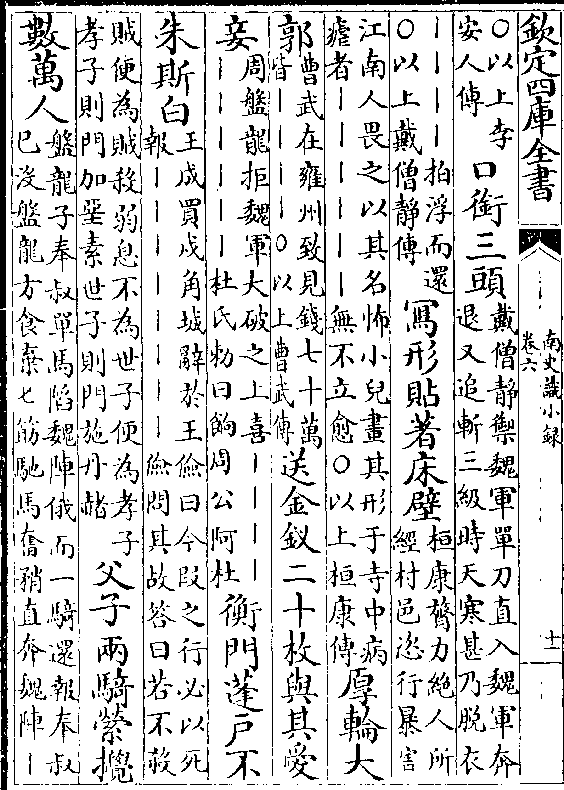 欽定四庫全書
南史識小録
卷六
十一
○以上李安人傳
口銜三頭
戴僧靜禦魏軍單刀直入魏軍奔
退又追斬三級時天寒甚乃脫衣
｜｜｜｜拍浮而還
○以上戴僧靜傳
寫形貼著床壁
桓康膂力絶人所
經村邑恣行暴害
江南人畏之以其名怖小兒畫其形于寺中病
瘧者｜｜｜｜｜｜無不立愈○以上桓康傳
厚輪大
郭
曹武在雍州致見錢七十萬
皆｜｜｜｜○以上曹武傳
送金釵二十枚與其愛
妾
周盤龍拒魏軍大破之上喜｜｜｜｜
｜｜｜｜｜｜杜氏勑曰餉周公阿杜
衡門蓬戸不
朱斯白
王成買戍角城辭於王儉曰今段之行必以死
報｜｜｜｜｜｜｜儉問其故答曰若不殺
賊便為賊殺弱息不為世子便為孝子
孝子則門加堊素世子則門施丹赭
父子兩騎縈攪
數萬人
盤龍子奉叔單馬陷魏陣俄而一騎還報奉叔
已沒盤龍方食棄七筯馳馬奮矟直奔魏陣｜